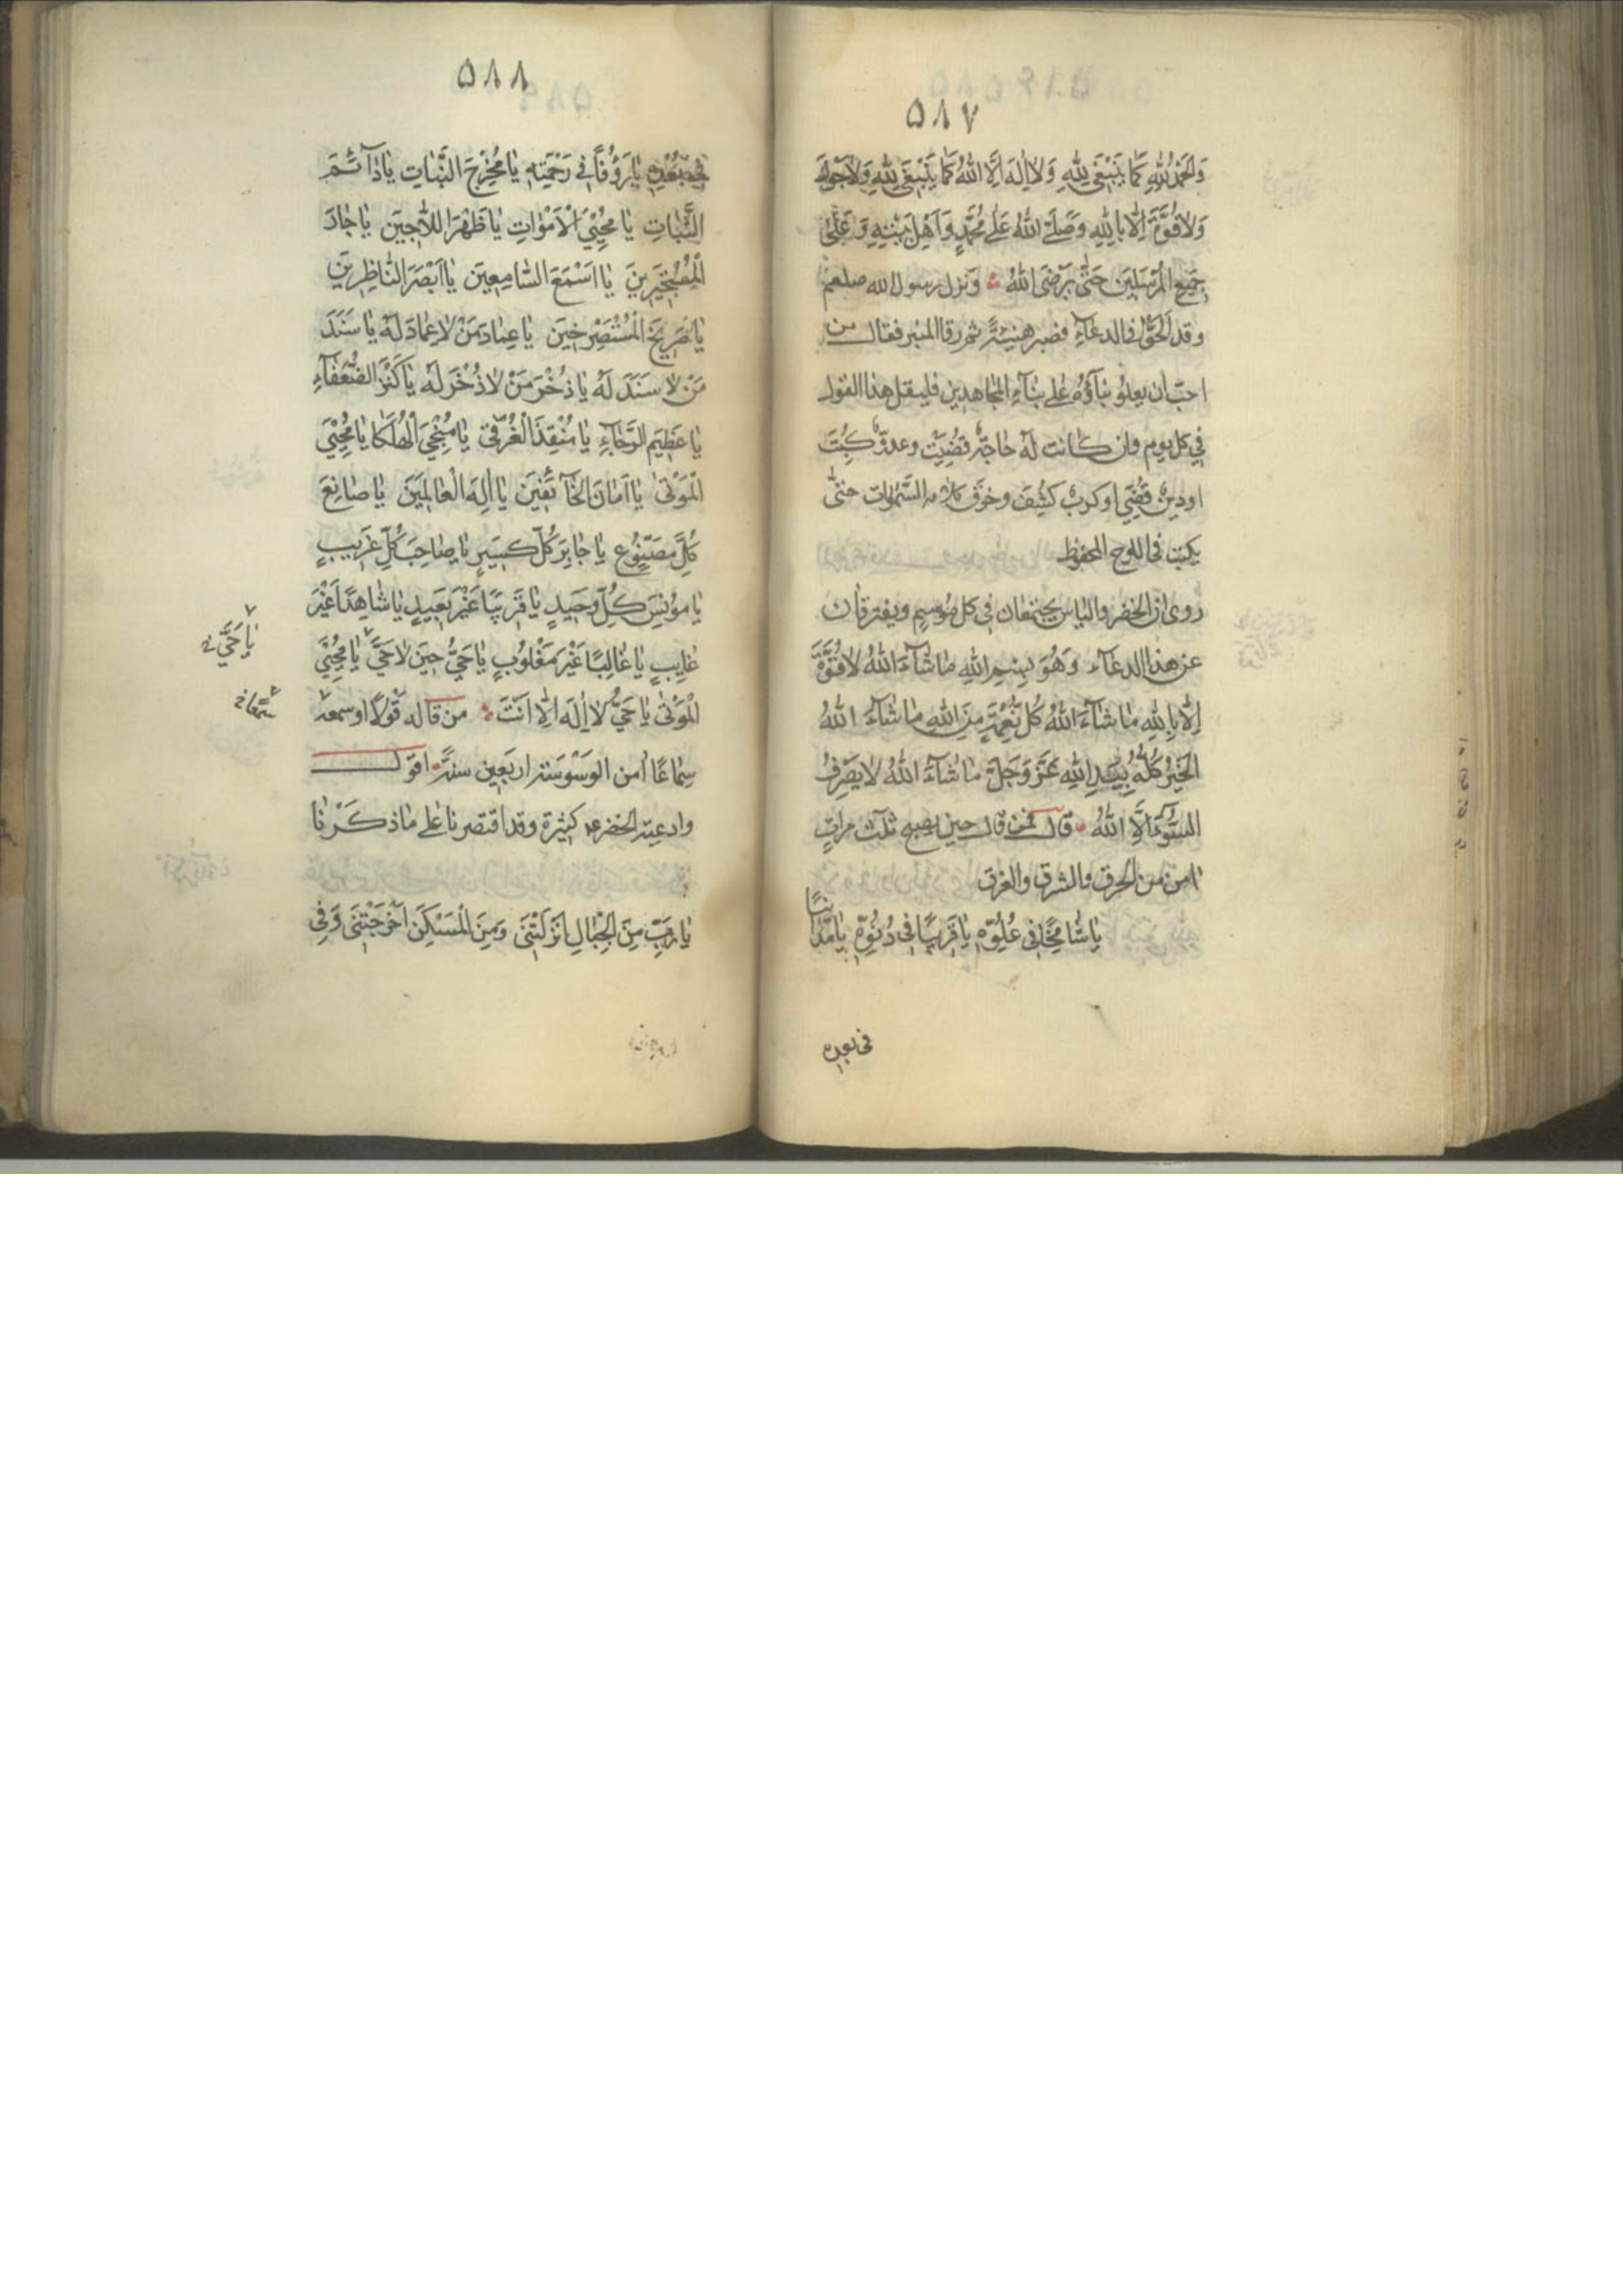 ۵۸۷
وَالْحَمْدُ لِلّٰهِ كَمَا يَنْبَغِي لِلّٰهِ وَلَا اِلٰهَ اِلَّا اللّٰهُ كَمَا يَنْبَغِي لِلّٰهِ وَلَا حَوْلَ
وَلَا قُوَّةَ اِلَّا بِاللّٰهِ وَصَلَّى اللّٰهُ عَلٰى مُحَمَّدٍ وَاَهْلِ بَيْتِهِ وَعَلٰى
جَمِيعِ الْمُرْسَلِينَ حَتّٰى يَرْضَى اللّٰهُ ونزل رسول الله صلعم
وقد الحّ فى الدعاء فصبر هنيئةً ثم رقا المنبر فقال من
احبّ ان يعلو ثناؤه على ثناء المجاهدين فليقل هذا القول
فى كل يوم فان كانت له حاجة قضيت وعدوّ كبت
او دين قضى او كرب كشف وخرق كلامه السموات حتى
يكتب فى اللوح المحفوظ
روى ان الخضر والياس يجتمعان فى كل موسم ويفترقان
عن هذا الدعاء وَهُوَ بِسْمِ اللّٰهِ مَا شَآءَ اللّٰهُ لَا قُوَّةَ
اِلَّا بِاللّٰهِ مَا شَآءَ اللّٰهُ كُلُّ نِعْمَةٍ مِنَ اللّٰهِ مَا شَآءَ اللّٰهُ
الْخَيْرُ كُلُّهُ بِيَدِ اللّٰهِ عَزَّ وَجَلَّ مَا شَآءَ اللّٰهُ لَا يَصْرِفُ
السُّوءَ اِلَّا اللّٰهُ قال فمن قال حين يصبح ثلث مراتٍ
امن من الحرق والشرق والغرق
يَا شَامِخًا فِى عُلُوِّهِ يَا قَرِيبًا فِى دُنُوِّهِ يَا مُدَانِيًا
فى بعده
۵۸۸
فِى بُعْدِهِ يَا رَؤُفًا فِى رَحْمَتِهِ يَا مُخْرِجَ النَّبَاتِ يَا دَآئِمَ
الثَّبَاتِ يَا مُحْيِيَ الْاَمْوَاتِ يَا ظَهْرَ اللَّاجِينَ يَا جَارَ
الْمُسْتَجِيرِينَ يَا اَسْمَعَ السَّامِعِينَ يَا اَبْصَرَ النَّاظِرِينَ
يَا صَرِيخَ الْمُسْتَصْرِخِينَ يَا عِمَادَ مَنْ لَا عِمَادَ لَهُ يَا سَنَدَ
مَنْ لَا سَنَدَ لَهُ يَا ذُخْرَ مَنْ لَا ذُخْرَ لَهُ يَا كَنْزَ الضُّعَفَآءِ
يَا عَظِيمَ الرَّجَآءِ يَا مُنْقِذَ الْغَرْقٰى يَا مُنْجِيَ الْهَلْكَا يَا مُحْيِيَ
الْمَوْتٰى يَا اَمَانَ الْخَآئِفِينَ يَا اِلٰهَ الْعَالَمِينَ يَا صَانِعَ
كُلِّ مَصْنُوعٍ يَا جَابِرَ كُلِّ كَسِيرٍ يَا صَاحِبَ كُلِّ غَرِيبٍ
يَا مُونِسَ كُلِّ وَحِيدٍ يَا قَرِيبًا غَيْرَ بَعِيدٍ يَا شَاهِدًا غَيْرَ
غَايِبٍ يَا غَالِبًا غَيْرَ مَغْلُوبٍ يَا حَيُّ حِينَ لَا حَيَّ يَا مُحْيِيَ
يَا حَيُّ
الْمَوْتٰى يَا حَيُّ لَا اِلٰهَ اِلَّا اَنْتَ من قاله قولًا او سمعه
سِمَاعًا اَمن الوسوسة اربعين سنة اقول
وادعية الخضر كثيرة وقد اقتصرنا على ما ذكرنا
يَا رَبِّ مِنَ الْجِبَالِ اَنْزَلْتَنِى وَمِنَ الْمَسْكَنِ اَخْرَجْتَنِى وَفِى